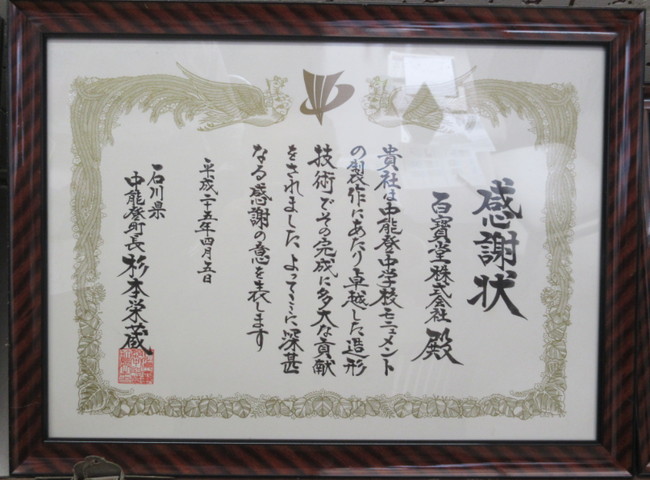 感謝状
百寶堂株式会社 殿
貴社は中能登中学校モニュメント
の製作にあたり卓越した造形
技術でその完成に多大な貢献
をされました よってここに深甚
なる感謝の意を表します
平成二十五年四月五日
石川県
中能登町長 杉本栄蔵